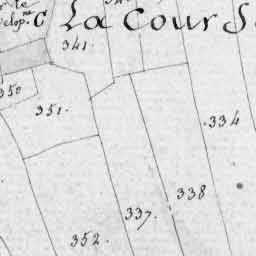 La Cour S
341
350
351.
334
338
337.
352.